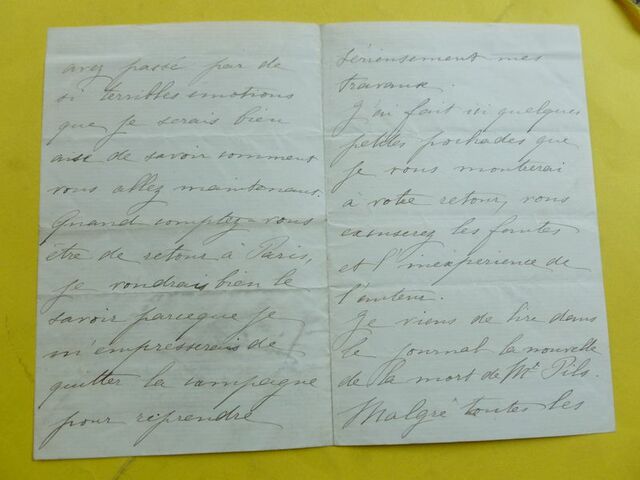 avez passé par de
si terribles emotions
que je serais bien
aise de savoir comment
vous allez maintenant.
Quand comptez-vous
être de retour à Paris,
je voudrais bien le
savoir parceque je
m'empresserais de
quitter la campagne
pour reprendre
sérieusement mes
travaux.
J'ai fait ici quelques
petites pochades que
je vous montrerai
à votre retour, vous
excuserez les fautes
et l'inexpérience de
l'auteur.
Je viens de lire dans
le journal la nouvelle
de la mort de Mr Pils.
Malgré toutes les